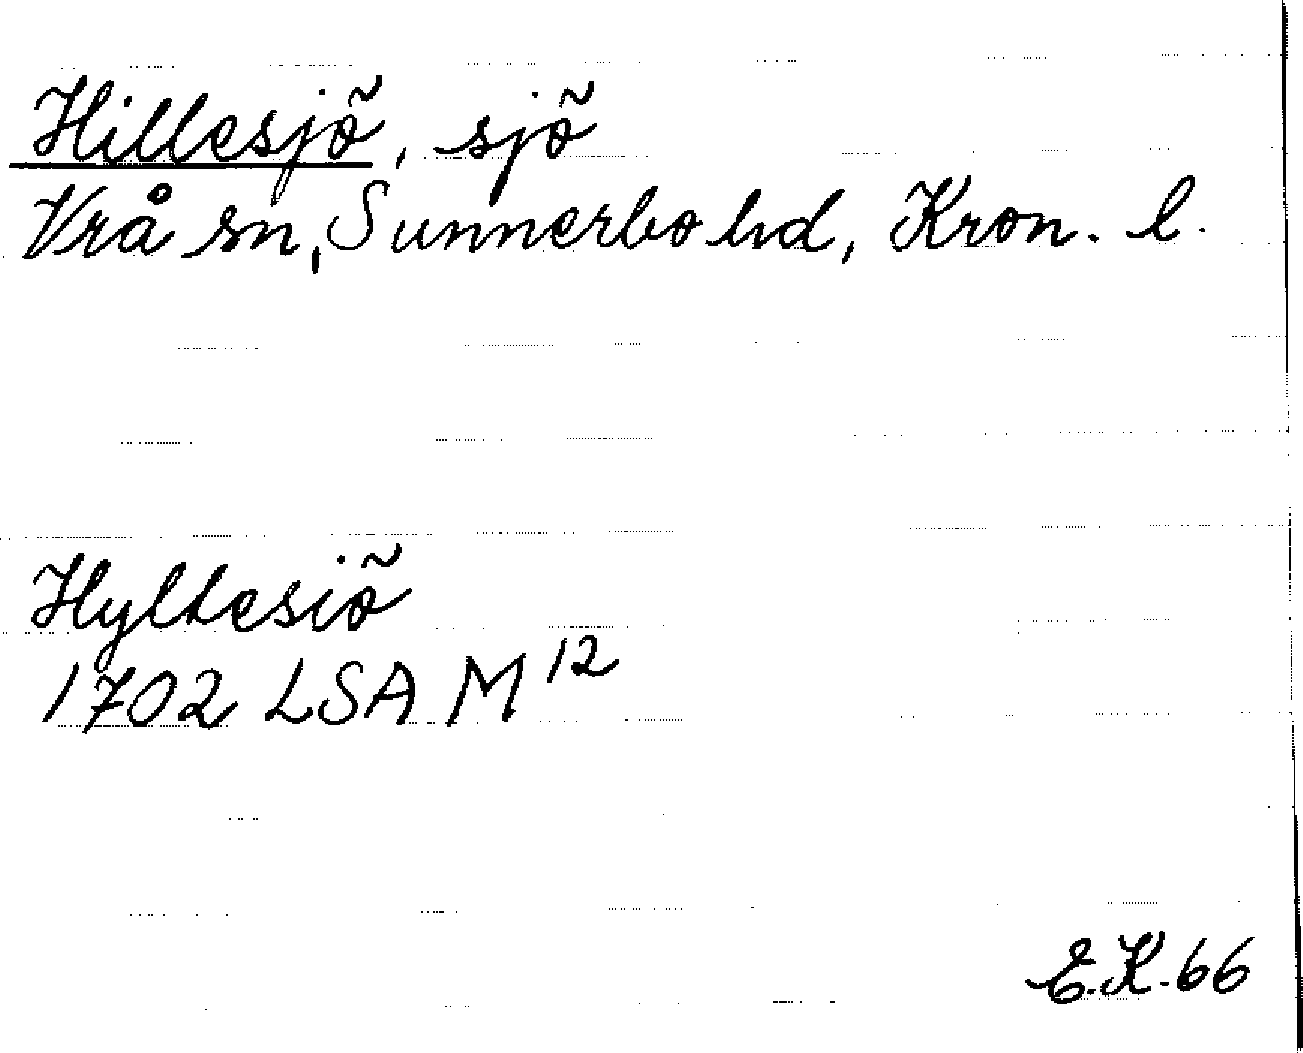 Hillesjö, sjö
Vrå sn, Sunnerbo hd, Kron. l.
Hyltesiö
1702 LSA M 12
E.K. 66